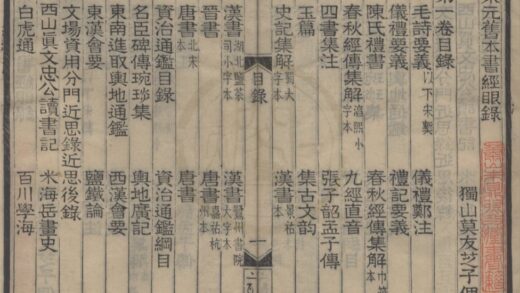 宋元舊本書經眼錄
獨山莫友芝子偲
第一卷目錄
毛詩要義以下宋槧 儀禮鄭注
儀禮要義 禮記要義
陳氏禮書 春秋經傳集解巾箱本
春秋經傳集解淳熙小字本 九經直音
四書集注 張子韶孟子傳
玉篇 集古文韻
史記集解蜀大字本 漢書景祐本
目錄 一
漢書湖北鹽茶司小字本 漢書鷺洲書院大字本
晉書 唐書嘉祐杭州本
唐書北宋本 唐書
資治通鑑目錄 資治通鑑綱目
名臣碑傳琬琰集 輿地廣記
東南進取輿地通鑑 西漢會要
東漢會要 鹽鐵論
文場資用分門近思錄近思後錄
西山眞文忠公讀書記 米海岳畫史
白虎通 百川學海